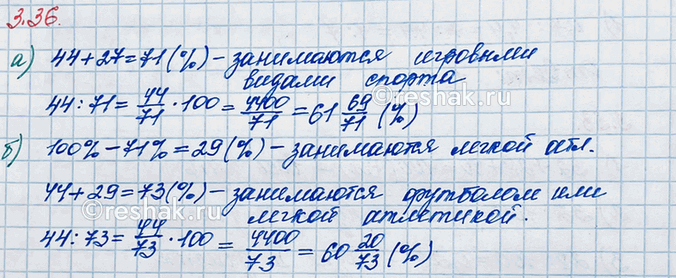 3.36.
а) 44+27=71(%) - занимаются игровыми
видами спорта
44:71= 44/71 · 100 = 4400/71 = 61 69/71 (%)
б) 100% - 71% = 29(%) - занимаются легкой атл.
44+29=73(%) - занимаются футболом или
легкой атлетикой.
44:73= 44/73 · 100 = 4400/73 = 60 20/73 (%)
©reshak.ru
©reshak.ru